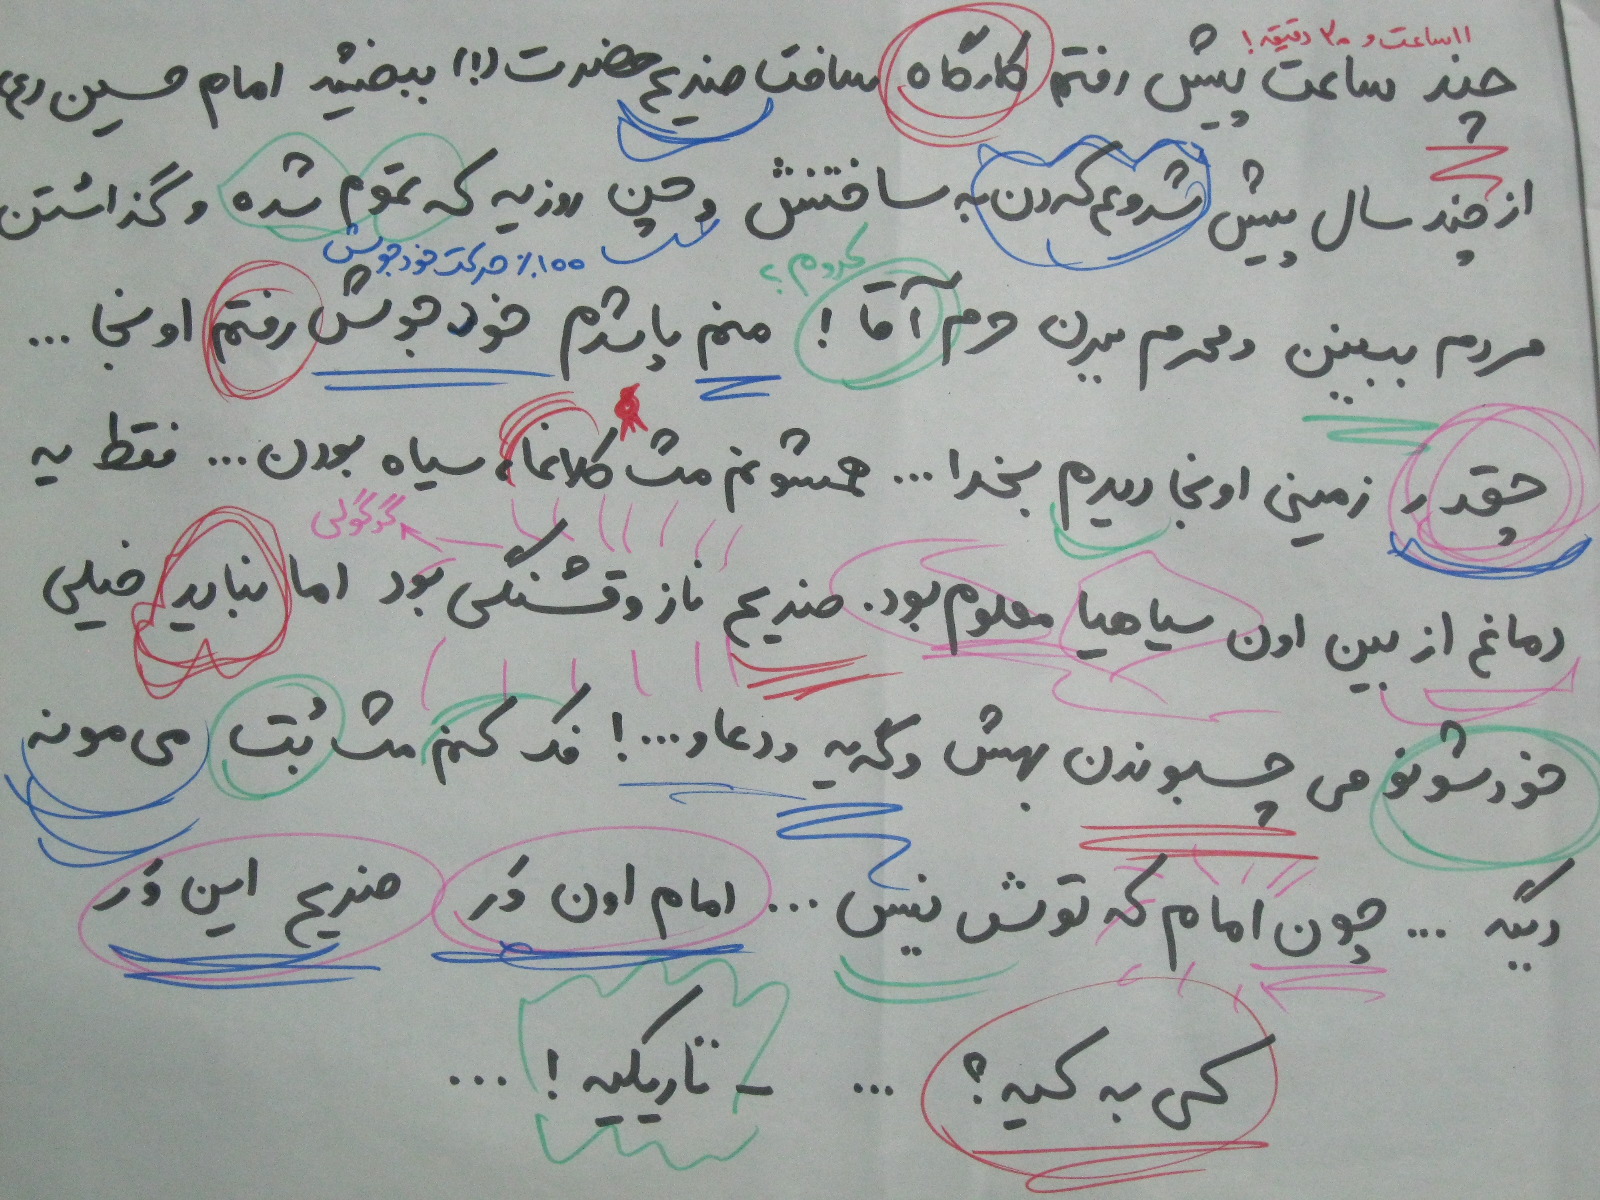 ۱۱ساعت و ۳۰ دقیقه!
چند ساعت پیش رفتم کارگاه ساخت ضریح حضرت (!) ببخشید امام حسین (ع)
از چند سال پیش شروع کردن به ساختنش و چن روزیه که تموم شده و گذاشتن
۱۰۰٪ حرکت خودجوش
کدوم؟
مردم ببینن و محرم میرن حرم آقا! منم پاشدم خودجوش رفتم اونجا ...
چقدر زمینی اونجا دیدم بخدا ... همشونم مث کلاغا، سیاه بودن ... فقط یه
گوگولی
دماغ از بین اون سیاهیا معلوم بود. ضریح ناز و قشنگی بود اما نباید خیلی
خودشونو می چسبوندن بهش و گریه و دعا و...! فک کنم مث بُت می مونه
دیگه ... چون امام که توش نیس ... امام اون وَر ضریح این وَر
کی به کیه؟ ... – تاریکیه! ...